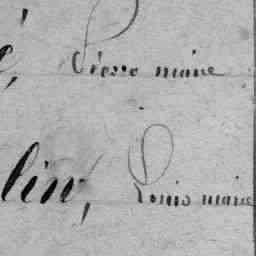 , Pierre marie
lin, Louis marie